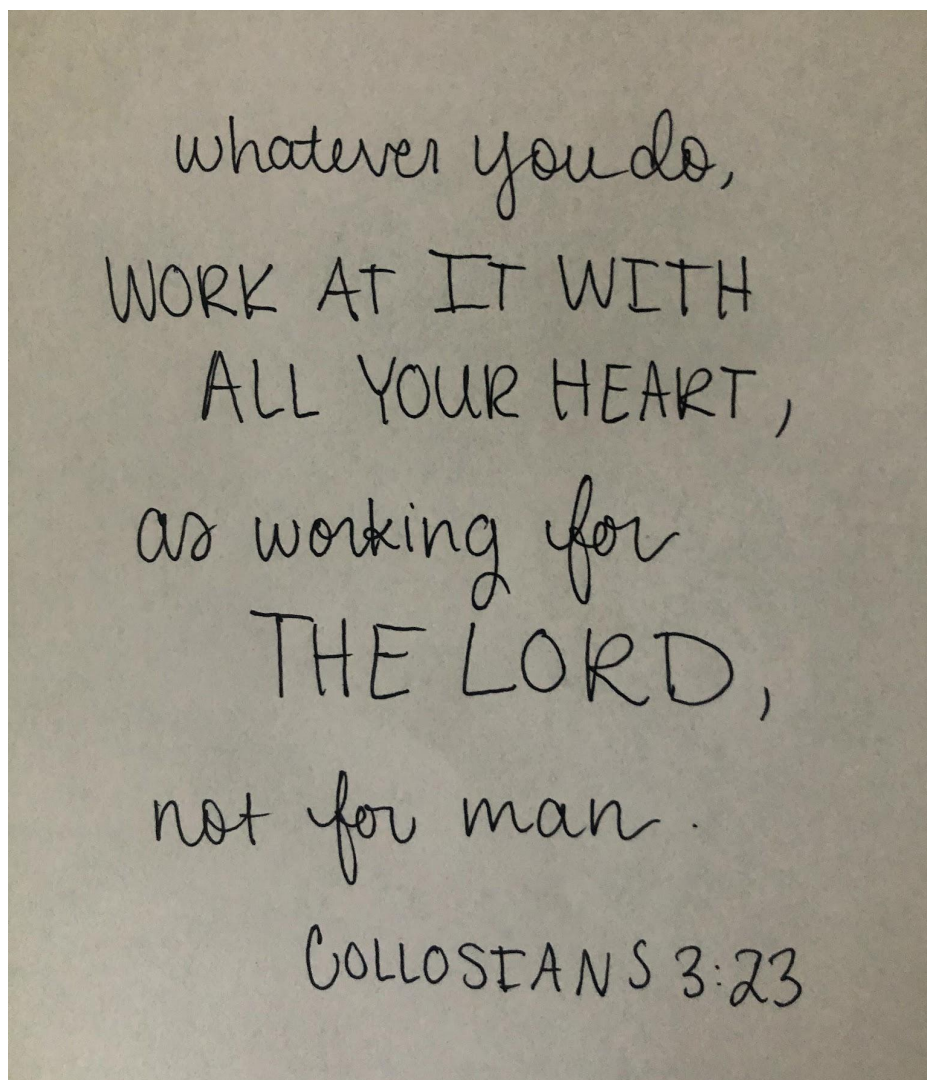 whatever you do,
WORK AT IT WITH
ALL YOUR HEART,
as working for
THE LORD,
not for man.
COLLOSIANS 3:23